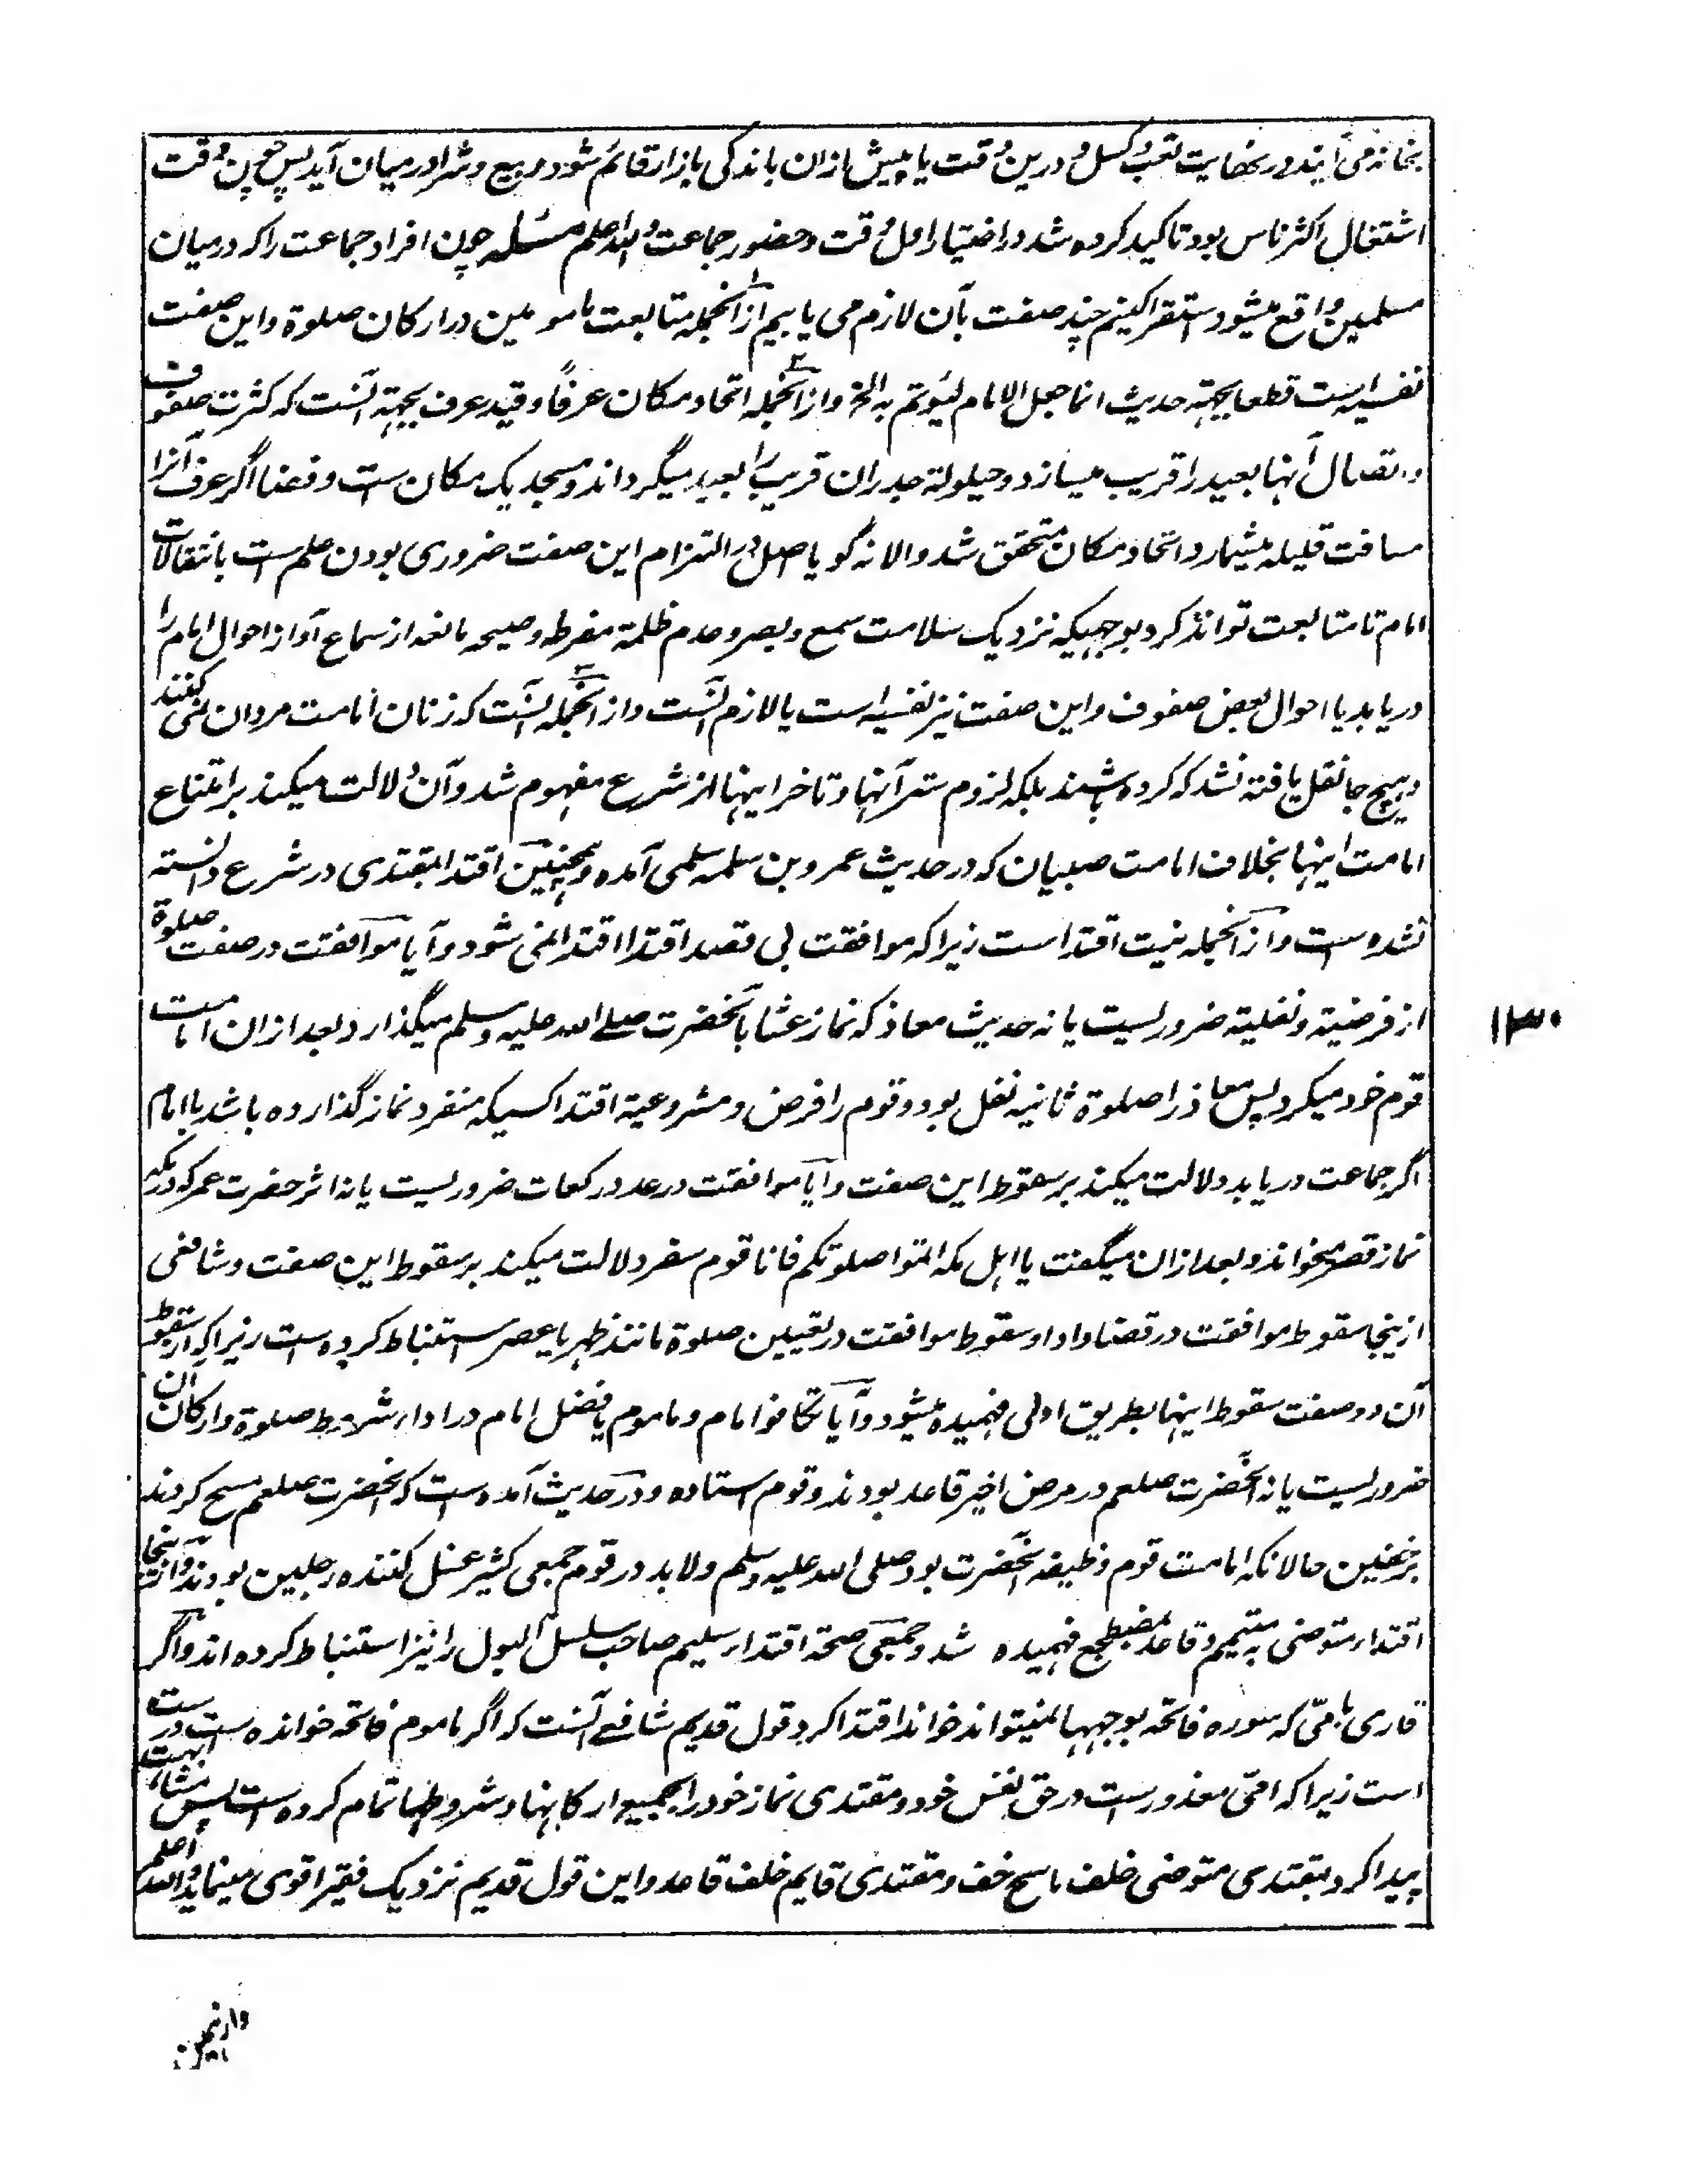 بخانه می آیند در نهایت تعب و کسل و درین وقت یا پیش ازان باندکی بازار قائم شود و بیع و شرا درمیان آید پس چون وقت
اشتغال اکثر ناس بود تاکید کرده شد در اختیار اول وقت و حضور جماعت والله اعلم مسئله چون افراد جماعت را که درمیان
مسلمین واقع میشود استقرا کنیم چند صفت بآن لازم می یابیم ازانجمله متابعت مامومین در ارکان صلوة و این صفت
نفسیه است قطعا بجهة حدیث انما جعل الامام لیؤتم به الخ و ازانجمله اتحاد مکان عرفاً و قید عرف بجهة آنست که کثرت صفوف
و اتصال آنها بعید را قریب میسازد و حیلولة جدران قریب را بعید میگرداند و مسجد یک مکان ست و فضا اگر عرف آنرا
مسافت قلیله میشمارد اتحاد مکان متحقق شد والا نه گویا اصل در التزام این صفت ضروری بودن علم ست بانتقالات
امام تا متابعت تواند کرد بوجهیکه نزدیک سلامت سمع و بصر و عدم ظلمة مفرطه و صیحه مانعه از سماع آواز احوال امام را
دریابد یا احوال بعض صفوف و این صفت نیز نفسیه است یا لازم آنست و ازانجمله آنست که زنان امامت مردان نمی کنند
و هیچ جا نقل یافته نشد که کرده باشند بلکه لزوم ستر آنها و تاخر اینها از شرع مفهوم شد و آن دلالت میکند بر امتناع
امامت اینها بخلاف امامت صبیان که در حدیث عمرو بن سلمه سلمی آمده و همچنین اقتدا بمقتدی در شرع دانسته
نشده ست و ازانجمله نیت اقتدا ست زیرا که موافقت بی قصد اقتدا اقتدا نمی شود و آیا موافقت در صفت صلوة
از فرضیة و نفلیة ضروریست یا نه حدیث معاذ که نماز عشا با آنحضرت صلی الله علیه وسلم میگذارد و بعد ازان امامت
قوم خود میکرد پس معاذ را صلوة ثانیه نفل بود و قوم را فرض و مشروعیة اقتدا کسیکه منفرد نماز گذارده باشد با امام
اگر جماعت دریابد دلالت میکند بر سقوط این صفت و آیا موافقت در عدد رکعات ضروریست یا نه اثر حضرت عمر که در مکه
نماز قصر میخواند و بعد ازان میگفت یا اهل مکه اتموا صلوتکم فانا قوم سفر دلالت میکند بر سقوط این صفت و شافعی
ازینجا سقوط موافقت در قضا و ادا و سقوط موافقت در تعیین صلوة مانند ظهر یا عصر استنباط کرده ست زیرا که از سقوط
آن دو صفت سقوط اینها بطریق اولی فهمیده میشود و آیا تکافؤ امام و ماموم یا فضل امام در اداء شروط صلوة و ارکان آن
ضروریست یا نه آنحضرت صلعم در مرض اخیر قاعد بودند و قوم استاده و در حدیث آمده است که آنحضرت صلعم مسح کردند
بر خفین حالانکه امامت قوم وظیفه آنحضرت بود صلی الله علیه وسلم ولابد در قوم جمعی کثیر غسل کننده رجلین بودند و ازینجا
اقتداء متوضی به متیمم و قاعد بمضطجع فهمیده شد و جمعی صحة اقتداء سلیم صاحب سلسل البول را نیز استنباط کرده اند و اگر
قاری بامّی که سوره فاتحه بوجهها نمیتواند خواند اقتدا کرد قول قدیم شافعی آنست که اگر ماموم فاتحه خوانده ست درست
است زیرا که امّی معذور ست در حق نفس خود و مقتدی نماز خود را بجمیع ارکانها و شروطها تمام کرده است پس مشابهت
پیدا کرد بمقتدی متوضی خلف ماسح خف و مقتدی قایم خلف قاعد و این قول قدیم نزدیک فقیر اقوی مینماید والله اعلم
۱۳۰